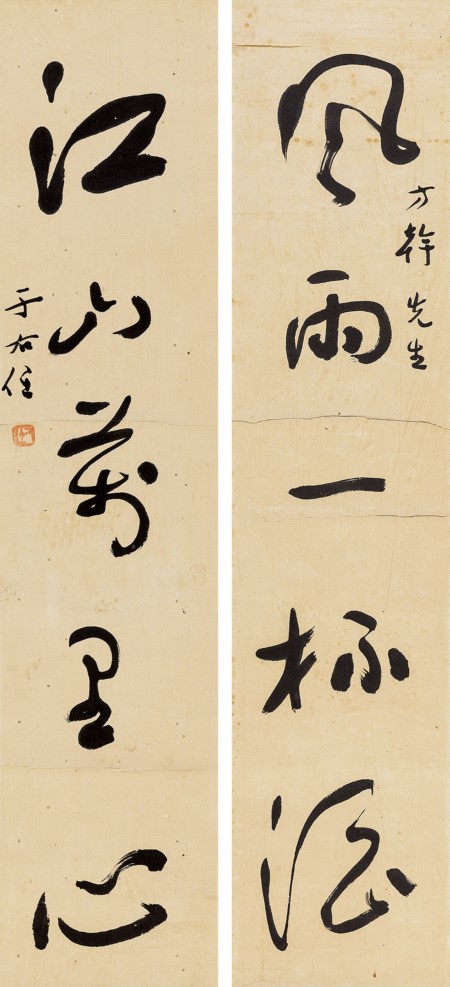 風雨一杯酒
方幹先生
江山萬里心
于右任